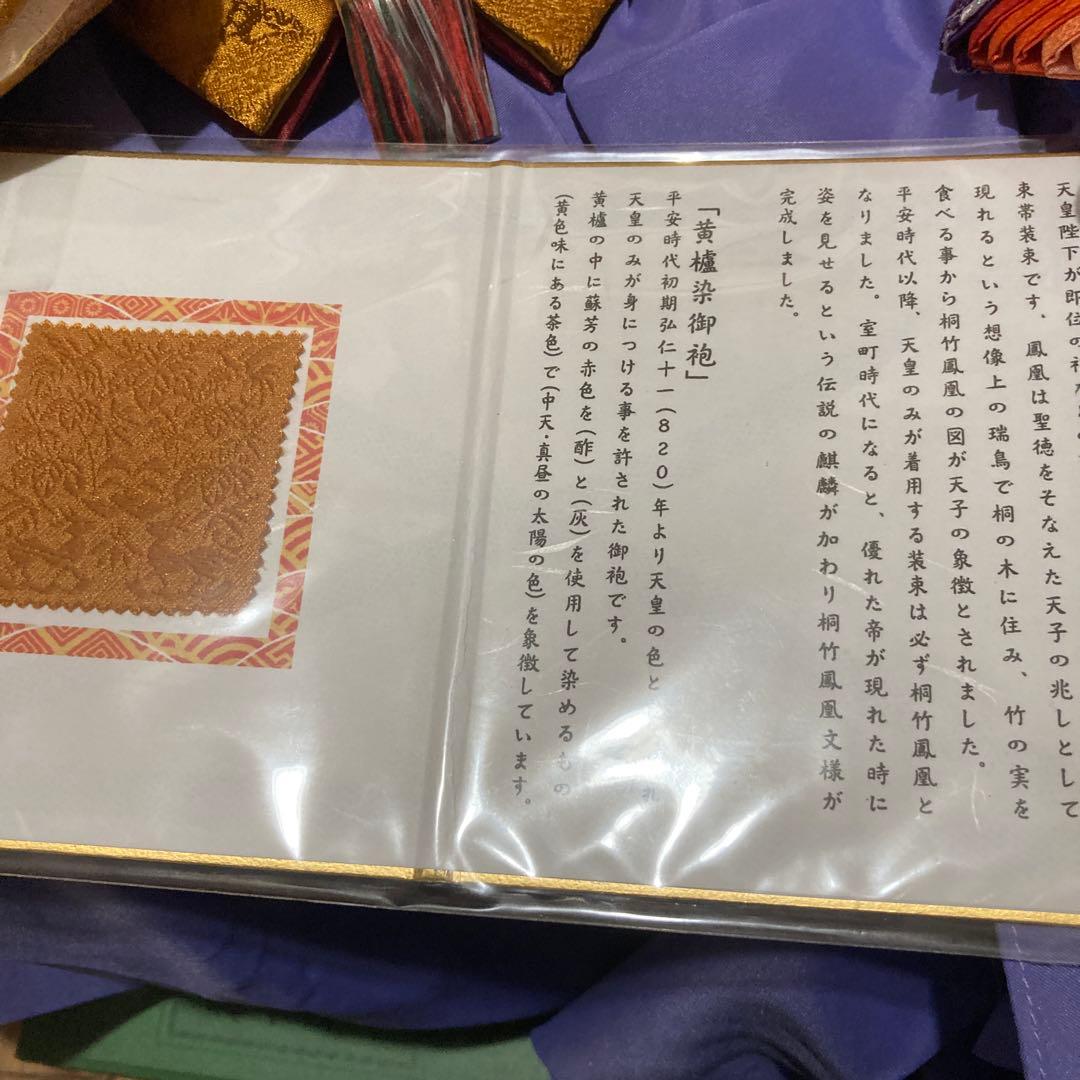 天皇陛下が即位の
束帯装束です。鳳凰は聖徳をそなえた天子の兆しとして
現れるという想像上の瑞鳥で桐の木に住み、竹の実を
食べる事から桐竹鳳凰の図が天子の象徴とされました。
平安時代以降、天皇のみが着用する装束は必ず桐竹鳳凰と
なりました。室町時代になると、優れた帝が現れた時に
姿を見せるという伝説の麒麟が加わり桐竹鳳凰文様が
完成しました。
「黄櫨染御袍」
平安時代初期弘仁十一(820)年より天皇の色と
れ
天皇のみが身につける事を許された御袍です。
黄櫨の中に蘇芳の赤色を(酢)と(灰)を使用して染めるもの
(黄色味にある茶色)で(中天・真昼の太陽の色)を象徴しています。